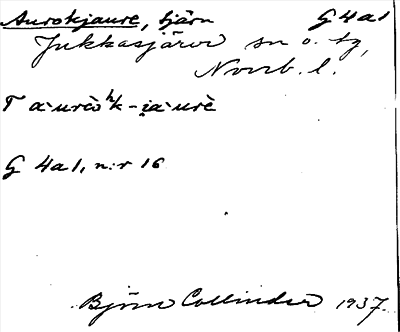 Aurokjaure, tjärn G 4a1
Jukkasjärvi sn o. tg,
Norrb. l.
T a·urèoʰk-i̯a·urè
G 4a1, n:r 16
Björn Collinder 1937.